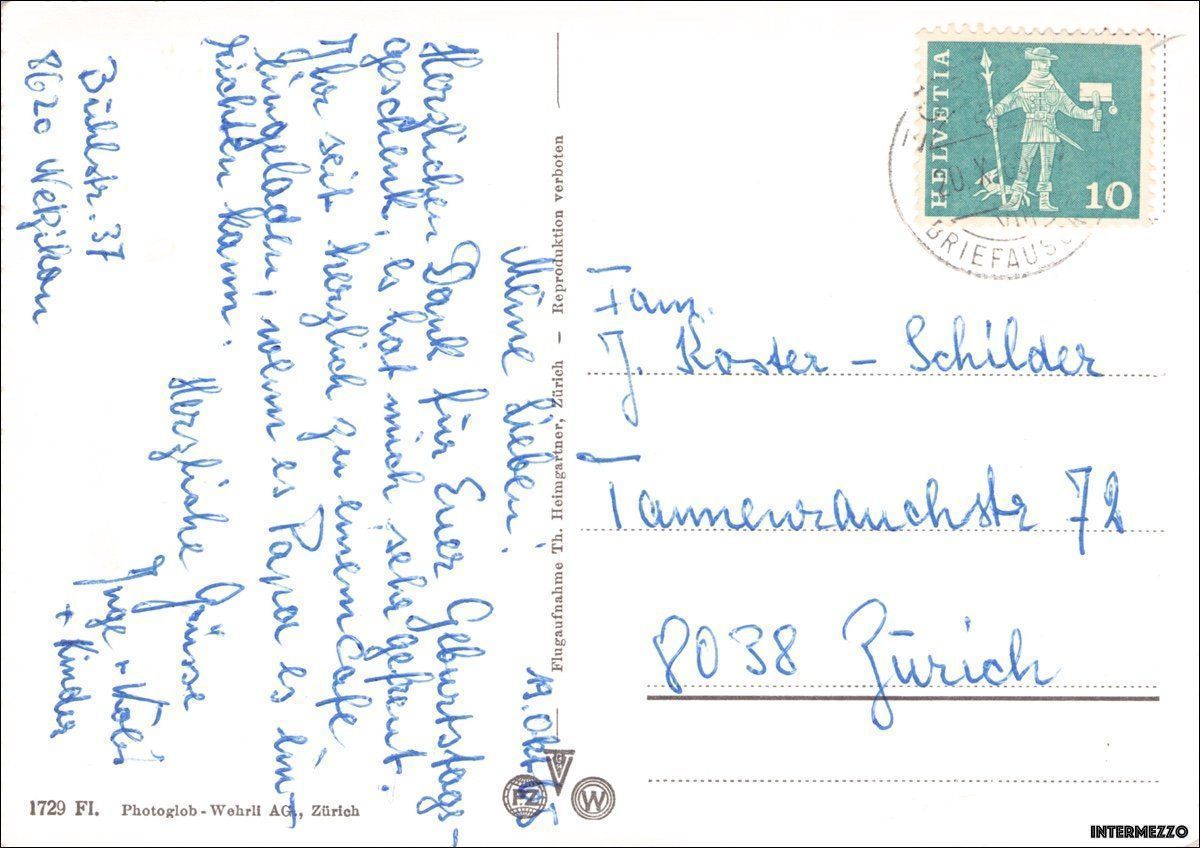 Meine Lieben! 19. Okt. 65
Herzlichen Dank für Euer Geburtstags-
geschenk, es hat mich sehr gefreut.
Ihr seit herzlich zu einem Café
eingeladen, wenn es Papa es ein-
richten kann.
Herzliche Grüsse
Inge +
+ Kinder
Bühlstr. 37
8620 Wetzikon
Flugaufnahme Th. Heimgartner, Zürich – Reproduktion verboten
HELVETIA
10
BRIEFAUS
Fam.
J. Koster - Schilder
Tannenrauchstr 72
8038 Zürich
PZ
W
1729 FI. Photoglob-Wehrli AG., Zürich
INTERMEZZO